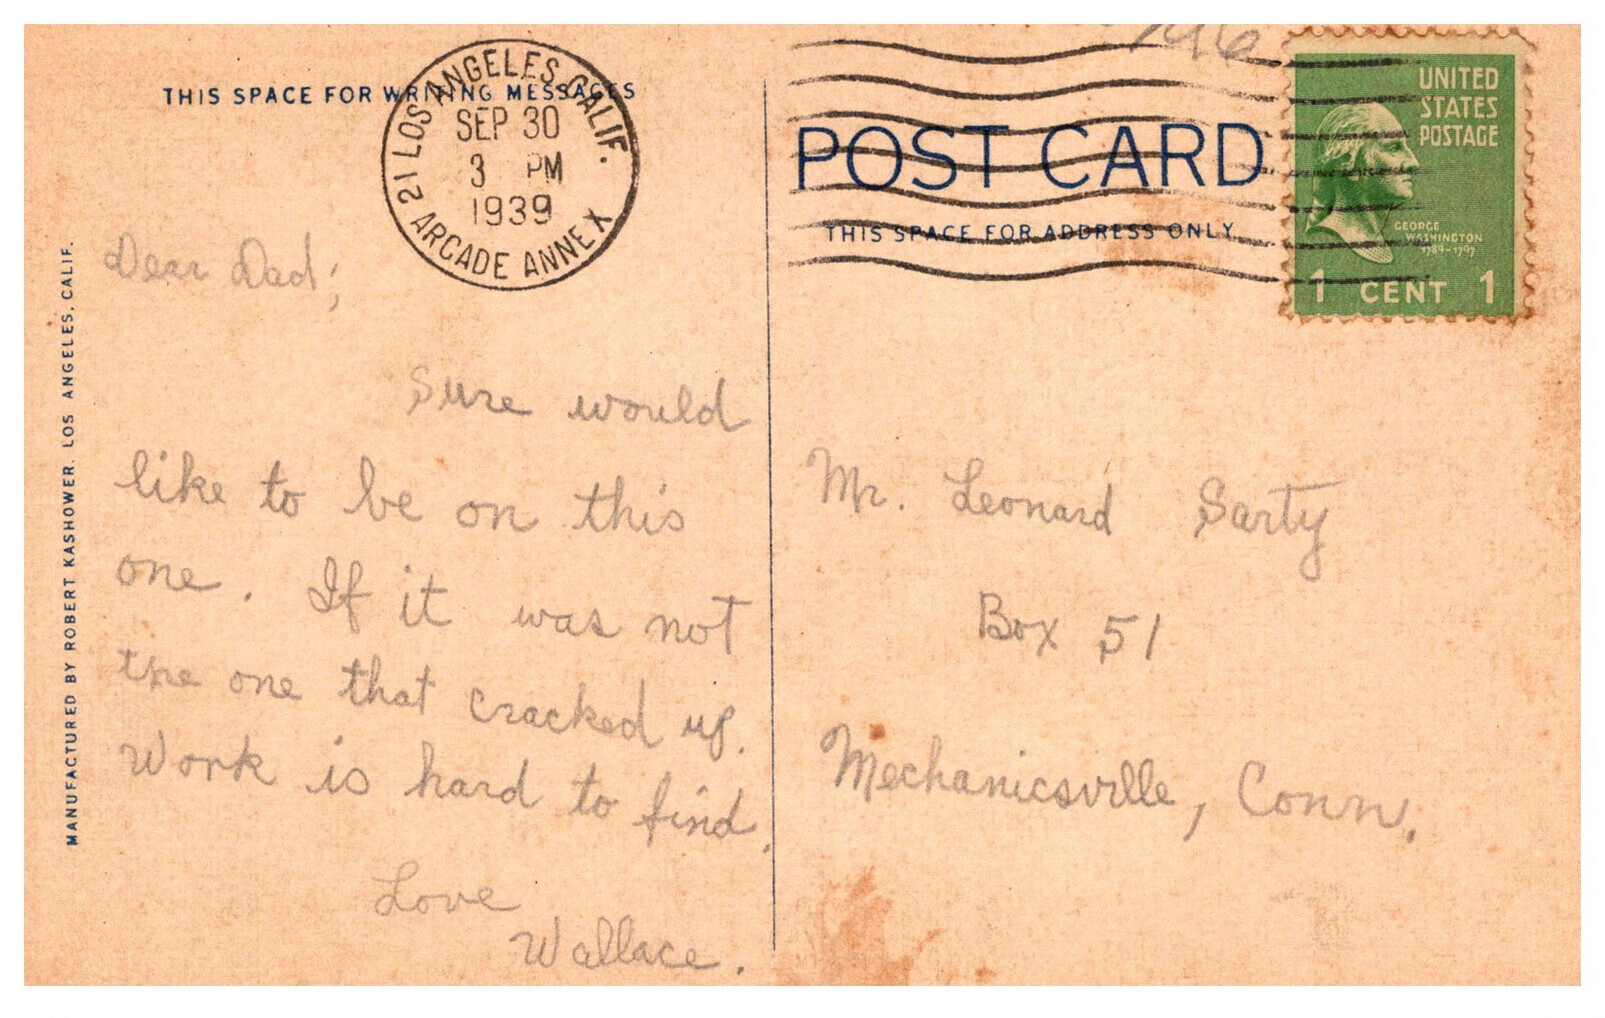 THIS SPACE FOR WRITING MESSAGES
21 LOS ANGELES, CALIF.
SEP 30
3 PM
1939
ARCADE ANNEX
Dear Dad;
Sure would
like to be on this
one. If it was not
the one that cracked up.
Work is hard to find.
Love
Wallace.
MANUFACTURED BY ROBERT KASHOWER. LOS ANGELES, CALIF.
POST CARD
THIS SPACE FOR ADDRESS ONLY
UNITED
STATES
POSTAGE
GEORGE
WASHINGTON
1789-1797
1 CENT 1
Mr. Leonard Sarty
Box 51
Mechanicsville, Conn.